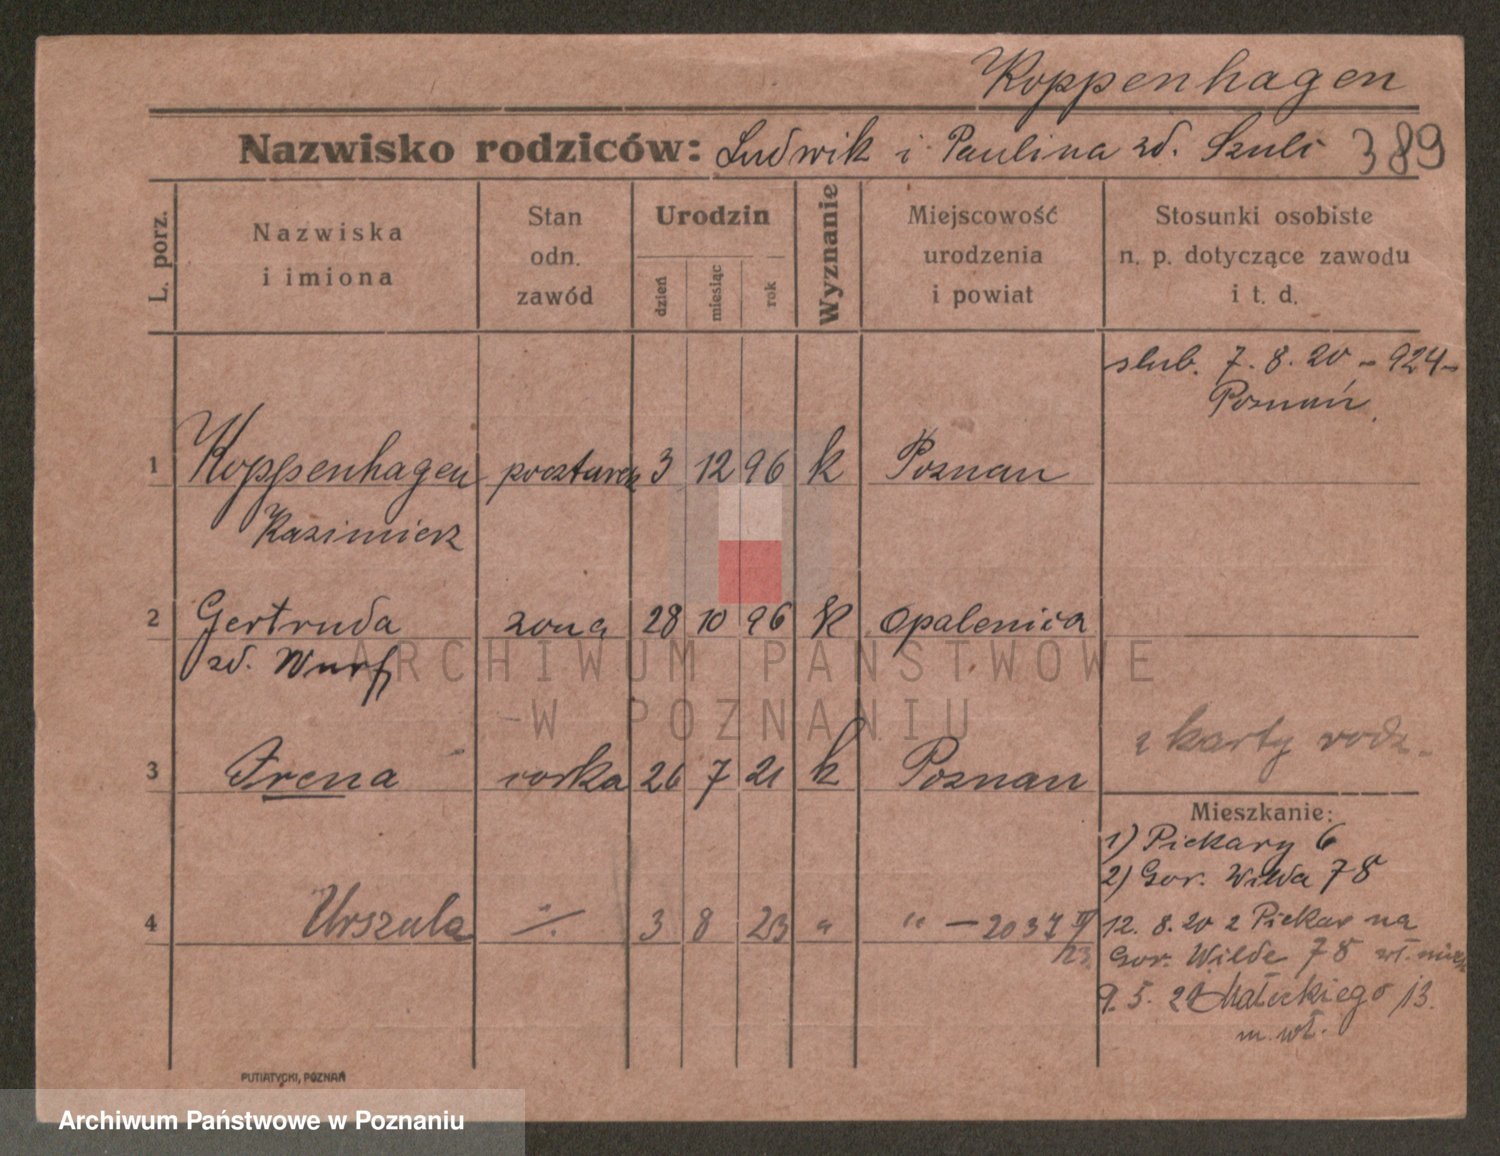 Koppenhagen
Nazwisko rodziców: Ludwik i Paulina zd. Szulc 389
L. porz.
Nazwiska
i imiona
Stan
odn.
zawód
Urodzin
dzień
miesiąc
rok
Wyznanie
Miejscowość
urodzenia
i powiat
Stosunki osobiste
n. p. dotyczące zawodu
i t. d.
ślub. 7.8.20 - 924 -
Poznań.
1 Koppenhagen 3 12 96 k Poznan
Kazimierz
2 Gertruda żona 28 10 96 k Opalenica
zd. Wurf
z karty rodz.
3 Irena corka 26 7 21 k Poznan
Mieszkanie:
1) Piekary 6
2) Gor. Wilda 78
4 Urszula -"/. 3 8 23 " " — 2037 III/23
12.8.20 z Piekar na
Gor. Wilde 78 wł.
9.5. Małeckiego 13.
m. wł.
PUTIATYCKI, POZNAŃ
ARCHIWUM PAŃSTWOWE
W POZNANIU
Archiwum Państwowe w Poznaniu